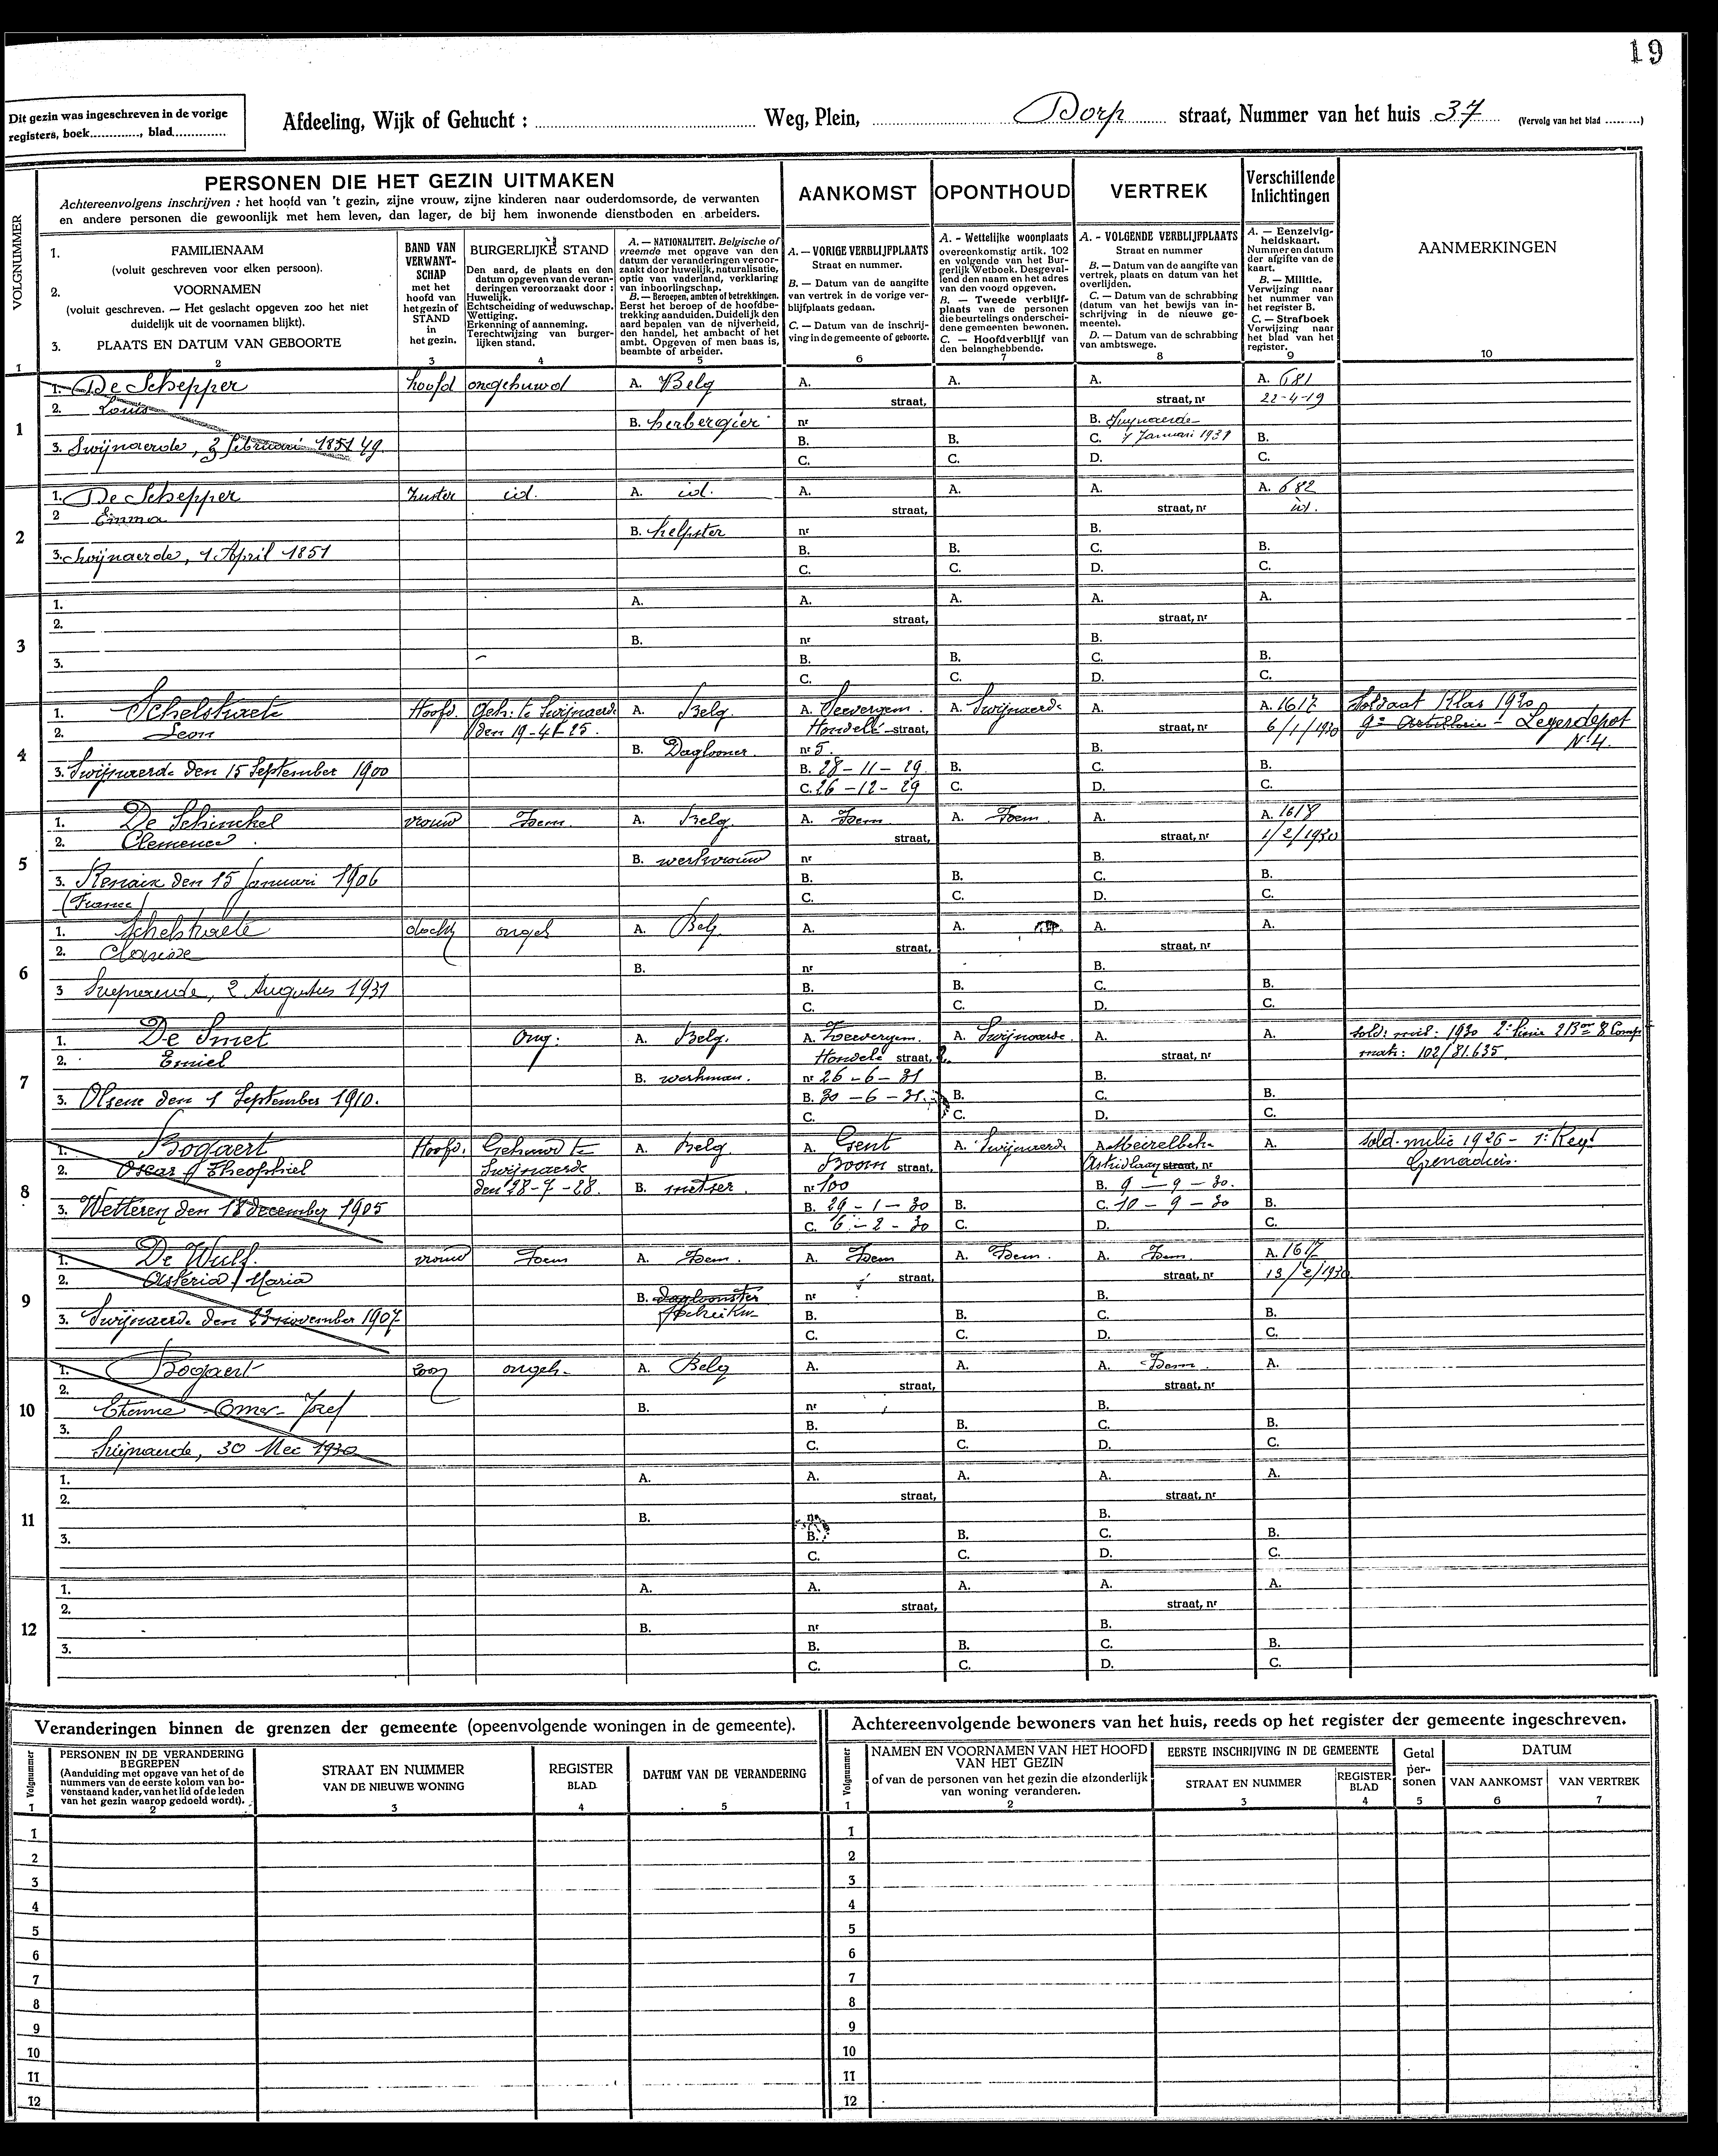 19
Dit gezin was ingeschreven in de vorige
registers, boek............, blad.............
Afdeeling, Wijk of Gehucht : .................... Weg, Plein, .................... Dorp straat, Nummer van het huis 37 (Vervolg van het blad .........)
VOLGNUMMER
PERSONEN DIE HET GEZIN UITMAKEN
Achtereenvolgens inschrijven : het hoofd van 't gezin, zijne vrouw, zijne kinderen naar ouderdomsorde, de verwanten
en andere personen die gewoonlijk met hem leven, dan lager, de bij hem inwonende dienstboden en arbeiders.
1. FAMILIENAAM
(voluit geschreven voor elken persoon).
2. VOORNAMEN
(voluit geschreven. — Het geslacht opgeven zoo het niet
duidelijk uit de voornamen blijkt).
3. PLAATS EN DATUM VAN GEBOORTE
BAND VAN
VERWANT-
SCHAP
met het
hoofd van
het gezin of
STAND
in
het gezin.
BURGERLIJKE STAND
Den aard, de plaats en den
datum opgeven van de veran-
deringen veroorzaakt door :
Huwelijk.
Echtscheiding of weduwschap.
Wettiging.
Erkenning of aanneming.
Terechtwijzing van burger-
lijken stand.
A. — NATIONALITEIT. Belgische of
vreemde met opgave van den
datum der veranderingen veroor-
zaakt door huwelijk, naturalisatie,
optie van vaderland, verklaring
van inboorlingschap.
B. — Beroepen, ambten of betrekkingen.
Eerst het beroep of de hoofdbe-
trekking aanduiden. Duidelijk den
aard bepalen van de nijverheid,
den handel, het ambacht of het
ambt. Opgeven of men baas is,
beambte of arbeider.
AANKOMST
A. — VORIGE VERBLIJFPLAATS
Straat en nummer.
B. — Datum van de aangifte
van vertrek in de vorige ver-
blijfplaats gedaan.
C. — Datum van de inschrij-
ving in de gemeente of geboorte.
OPONTHOUD
A. - Wettelijke woonplaats
overeenkomstig artik. 102
en volgende van het Bur-
gerlijk Wetboek. Desgeval-
lend den naam en het adres
van den voogd opgeven.
B. — Tweede verblijf-
plaats van de personen
die beurtelings onderschei-
dene gemeenten bewonen.
C. — Hoofdverblijf van
den belanghebbende.
VERTREK
A. - VOLGENDE VERBLIJFPLAATS
Straat en nummer
B. — Datum van de aangifte van
vertrek, plaats en datum van het
overlijden.
C. — Datum van de schrabbing
(datum van het bewijs van in-
schrijving in de nieuwe ge-
meente).
D. — Datum van de schrabbing
van ambtswege.
Verschillende
Inlichtingen
A. — Eenzelvig-
heidskaart.
Nummer en datum
der afgifte van de
kaart.
B. — Militie.
Verwijzing naar
het nummer van
het register B.
C. — Strafboek
Verwijzing naar
het blad van het
register.
AANMERKINGEN
1 2 3 4 5 6 7 8 9 10
1
1. De Schepper hoofd ongehuwd A. Belg A. A. A. A. 681
2. Louis straat, straat, nr 22-4-19
B. herbergier nr B. Swynaerde
3. Swijnaerde, 3 februari 1851 49. B. B. C. 7 Januari 1931 B.
C. C. D. C.
2
1. De Schepper zuster id. A. id. A. A. A. A. 682
2 Emma straat, straat, nr id.
B. helpster nr B.
3. Swijnaerde, 1 April 1851 B. B. C. B.
C. C. D. C.
3
1. A. A. A. A. A.
2. straat, straat, nr
B. nr B.
3. B. B. C. B.
C. C. D. C.
4
1. Schelstraete Hoofd. Geh: te Swijnaerde A. Belg. A. Seevergem. A. Swijnaerde A. A. 1617 Soldaat Klas 1920
2. Leon den 19-4-25. Hondelé straat, straat, nr 6/1/1930 9e Artillerie - Legerdepot
B. Daglooner. nr 5. B. N° 4.
3. Swijnaerde den 15 September 1900 B. 28-11-29. B. C. B.
C. 26-12-29 C. D. C.
5
1. De Schinckel vrouw Idem. A. Belg. A. Idem A. Idem A. A. 1618
2. Clemence. straat, straat, nr 1/2/1930
B. werkvrouw nr B.
3. Renaix den 15 Januari 1906 B. B. C. B.
(France) C. C. D. C.
6
1. Schelstraete docht ongeh A. Belg. A. A. A. A.
2. Clarisse straat, straat, nr
B. nr B.
3 Swynaerde, 2 Augustus 1931 B. B. C. B.
C. C. D. C.
7
1. De Smet Ong: A. Belg. A. Zeevergem. A. Swijnaerde. A. A. sold: mil: 1930 2e Linie 2 Bon 8 Comp
2. Emiel Hondelé straat, straat, nr matr: 102/81.635.
B. werkman. nr 26-6-31 B.
3. Olsene den 1 September 1910. B. 30-6-31. B. C. B.
C. C. D. C.
8
1. Bogaert Hoofd. Gehuwd te A. Belg A. Gent A. Swijnaerde A. Meirelbeke A. sold. milic 1926 - 1e Regt
2. Oscar Theophiel Swijnaerde Boom straat, Astridlaan straat, nr Grenadiers.
den 28-7-28. B. metser. nr 100 B. 9-9-30.
3. Wetteren den 18 december 1905 B. 29-1-30 B. C. 10-9-30 B.
C. 6-2-30 C. D. C.
9
1. De Wulf. vrouw Idem A. Idem. A. Idem A. Idem. A. Idem. A. 1617
2. Asteria Maria straat, straat, nr 13/2/1930
B. dagloonster nr B.
3. Swijnaerde den 23 november 1907 B. B. C. B.
C. C. D. C.
10
1. Bogaert zoon ongeh. A. Belg A. A. A. Idem. A.
2. straat, straat, nr
Etienne - Omer - Jozef B. nr B.
3. B. B. C. B.
Swijnaerde, 30 Mei 1930 C. C. D. C.
11
1. A. A. A. A. A.
2. straat, straat, nr
B. nr B.
3. B. B. C. B.
C. C. D. C.
12
1. A. A. A. A. A.
2. straat, straat, nr
B. nr B.
3. B. B. C. B.
C. C. D. C.
Veranderingen binnen de grenzen der gemeente (opeenvolgende woningen in de gemeente).
Volgnummer
PERSONEN IN DE VERANDERING
BEGREPEN
(Aanduiding met opgave van het of de
nummers van de eerste kolom van bo-
venstaand kader, van het lid of de leden
van het gezin waarop gedoeld wordt).
STRAAT EN NUMMER
VAN DE NIEUWE WONING
REGISTER
BLAD
DATUM VAN DE VERANDERING
1 2 3 4 5
1
2
3
4
5
6
7
8
9
10
11
12
Achtereenvolgende bewoners van het huis, reeds op het register der gemeente ingeschreven.
Volgnummer
NAMEN EN VOORNAMEN VAN HET HOOFD
VAN HET GEZIN
of van de personen van het gezin die afzonderlijk
van woning veranderen.
EERSTE INSCHRIJVING IN DE GEMEENTE
STRAAT EN NUMMER
REGISTER
BLAD
Getal
per-
sonen
DATUM
VAN AANKOMST
VAN VERTREK
1 2 3 4 5 6 7
1
2
3
4
5
6
7
8
9
10
11
12